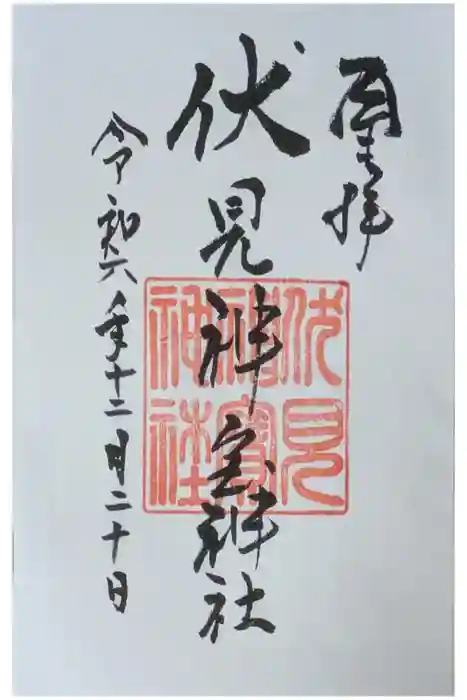 拝
伏見神宝神社
令和六年十二月二十日
伏見
神寶
神社